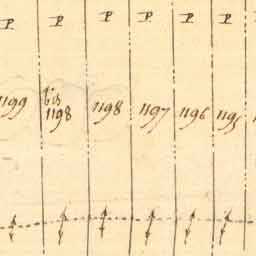 P P P P P P
1199 bis 1198 1198 1197 1196 1195